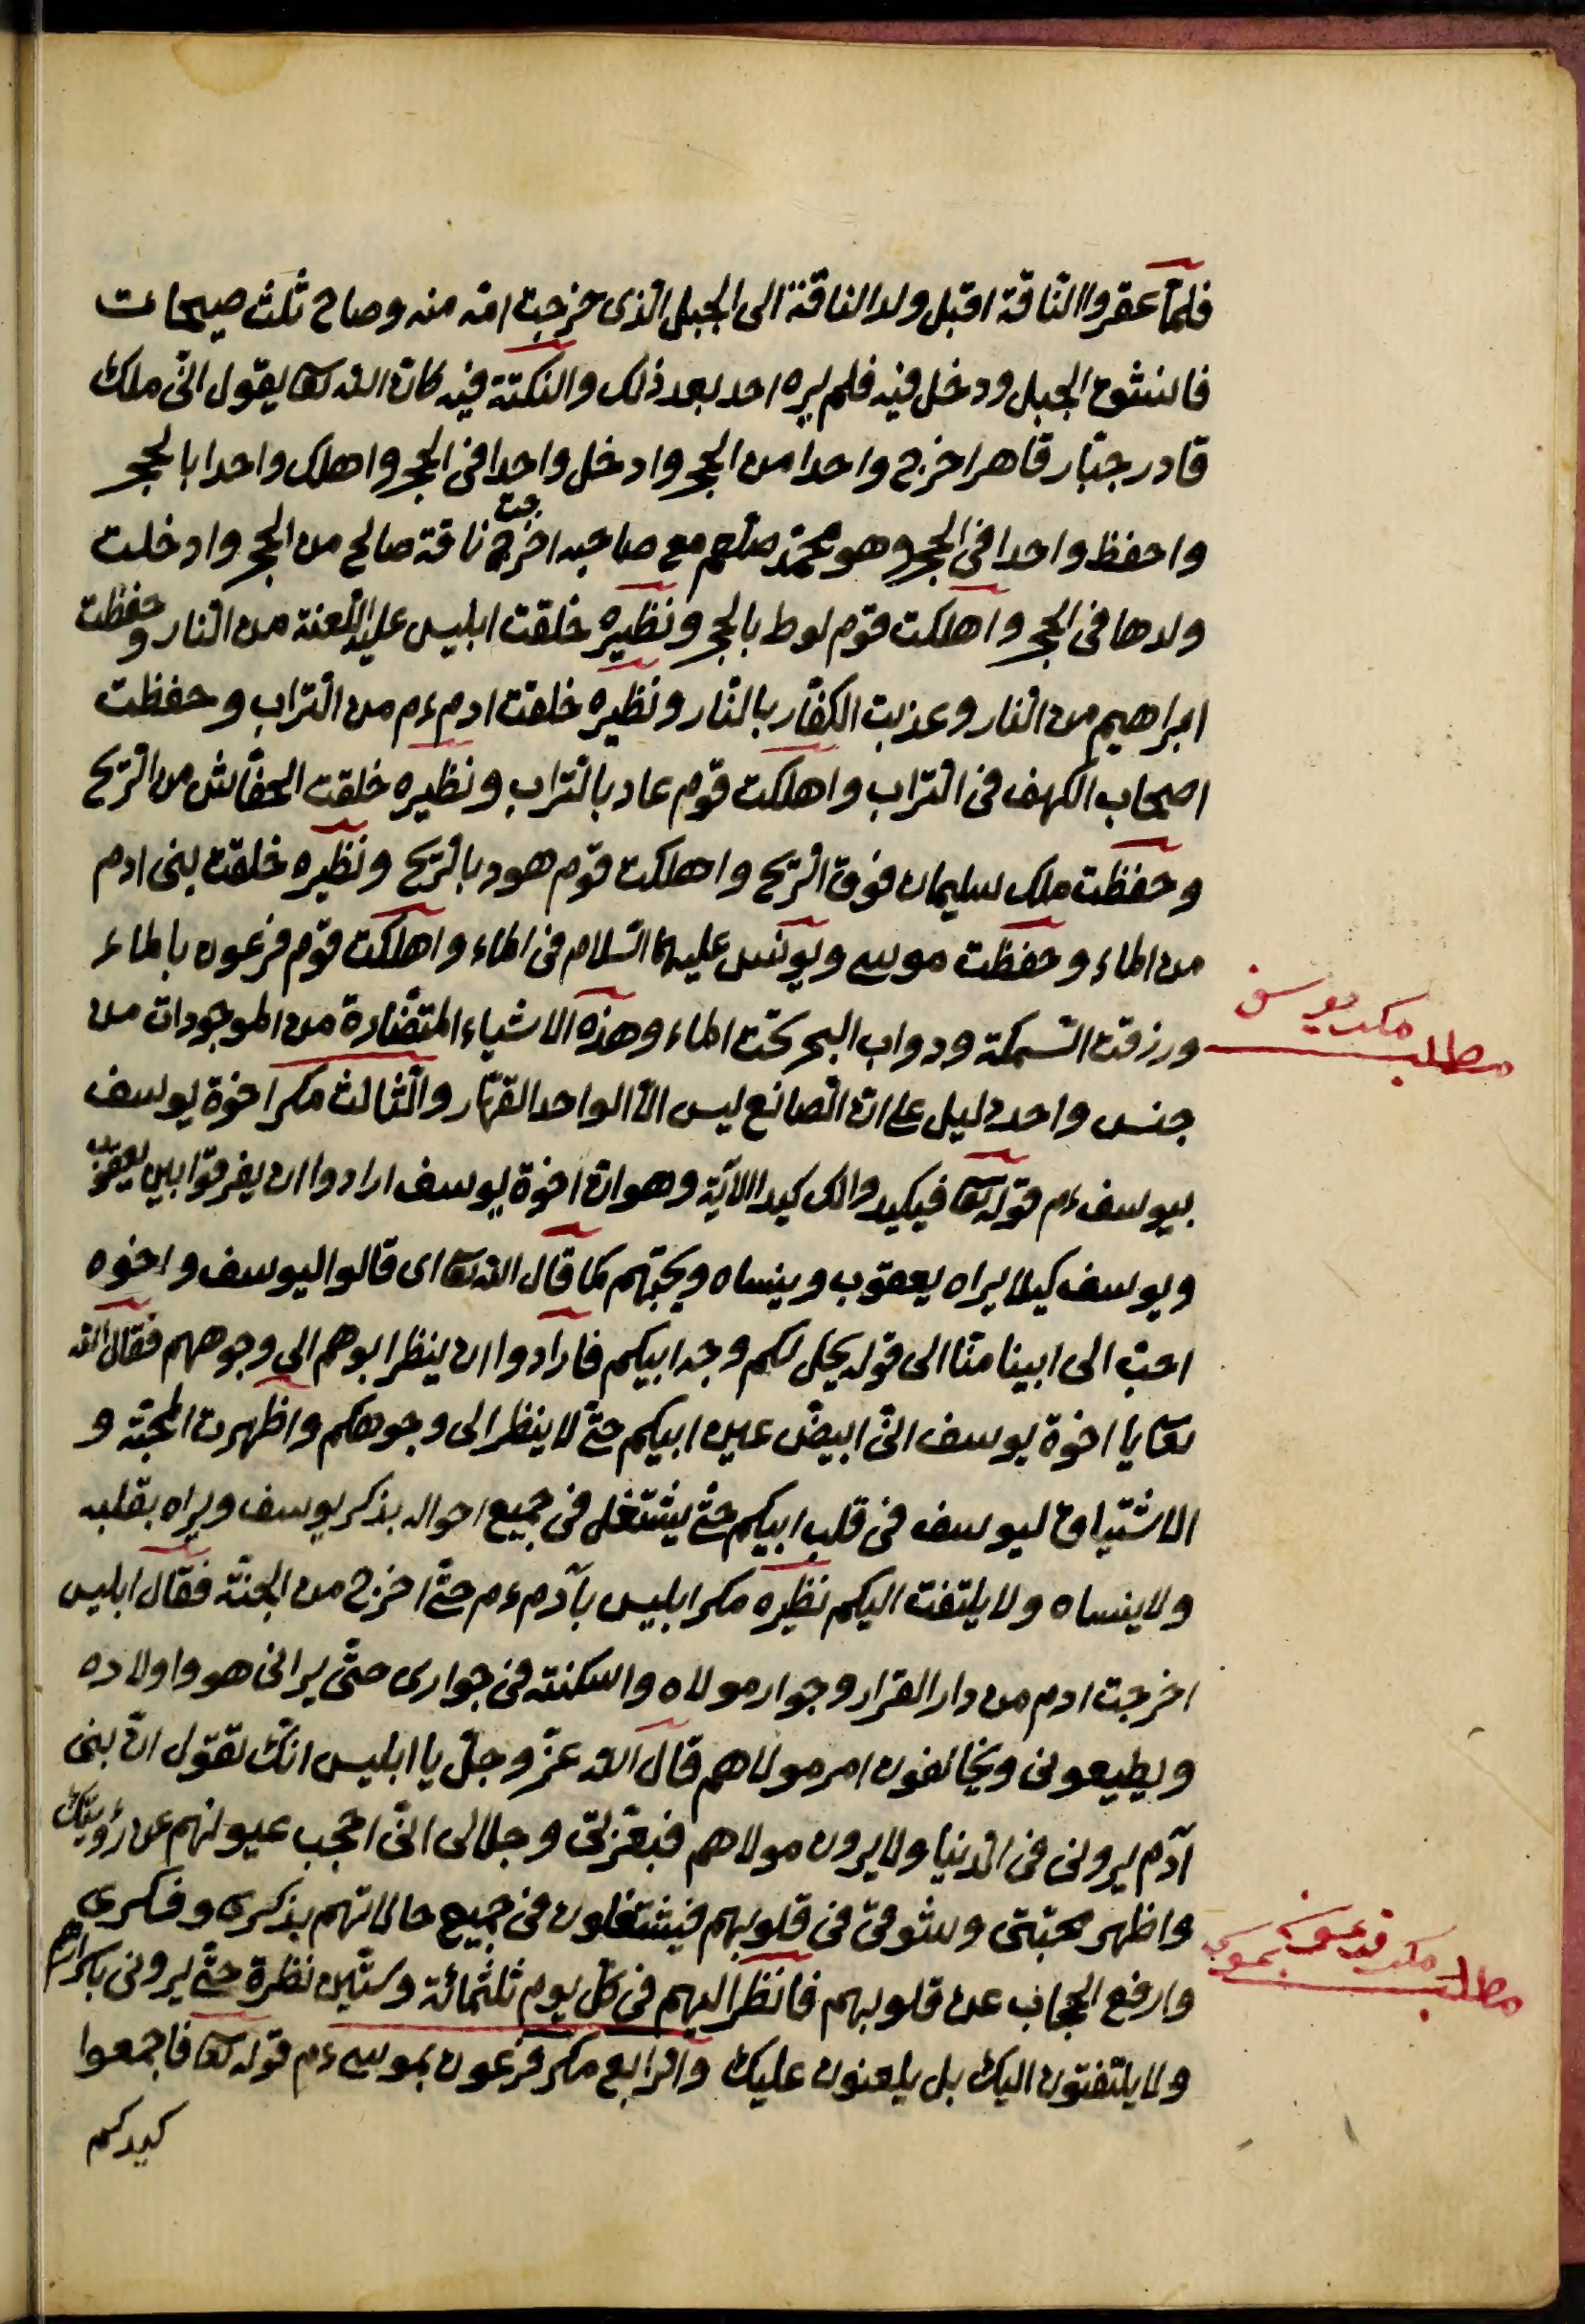 فلمّا عقروا النّاقة اقبل ولد الناقة الى الجبل الّذى خرجت امّه منه وصاح ثلث صيحات
فانشق الجبل ودخل فيه فلم يره احد بعد ذلك والنكتة فيه كان الله تعا يقول انّى ملك
قادر جبّار قاهر اخرج واحدا من الحجر وادخل واحدا فى الحجر واهلك واحدا بالحجر
واحفظ واحدا فى الحجر وهو محمّد صلعم مع صاحبه اخرجت ناقة صالح من الحجر وادخلت
ولدها فى الحجر واهلكت قوم لوط بالحجر ونظيره خلقت ابليس عليه اللّعنة من النار وحفظت
ابراهيم من النار وعذبت الكفّار بالنّار ونظيره خلقت ادم ءم من التراب وحفظت
اصحاب الكهف فى التراب واهلكت قوم عاد بالتراب ونظيره خلقت الخفّاش من الرّيح
وحفظت ملك سليمان فوق الرّيح واهلكت قوم هود بالرّيح ونظيره خلقت بنى ادم
من الماء وحفظت موسى ويونس عليهما السّلام فى الماء واهلكت قوم فرعون بالماء
ورزقت السّمكة ودواب البحر تحت الماء وهذه الاشياء المتضّادة من الموجودات من
مطلب مكر يوسف
جنس واحد دليل على انّ الصانع ليس الّا الواحد القهّار والثّالث مكر اخوة يوسف
بيوسف ءم قوله تعا فيكيدوا لك كيدا الآية وهو ان اخوة يوسف ارادوا ان يفرقوا بين يعقوب
ويوسف كيلا يراه يعقوب وينساه ويحبّهم كما قال الله تعا اى قالوا ليوسف واخوه
احبّ الى ابينا منّا الى قوله يخل لكم وجه ابيكم فارادوا ان ينظر ابوهم الى وجوههم فقال الله
تعا يا اخوة يوسف انّى ابيضّ عين ابيكم حتّى لا ينظر الى وجوهكم واظهرت المحبّة و
الاشتياق ليوسف فى قلب ابيكم حتّى يشتغل فى جميع احواله بذكر يوسف ويراه بقلبه
ولا ينساه ولا يلتفت اليكم نظيره مكر ابليس بآدم ءم حتّى اخرج من الجنّة فقال ابليس
اخرجت ادم من دار القرار وجوار مولاه واسكنته فى جوارى حتّى يرانى هو واولاده
ويطيعونى ويخالفون امر مولاهم قال الله عزّ وجلّ يا ابليس انّك تقول انّ بنى
آدم يرونى فى الدنيا ولا يرون مولاهم فبعزّتى وجلالى انّى احجب عيونهم عن رؤيتك
واظهر محبّتى وشوقى فى قلوبهم فيشتغلون فى جميع حالاتهم بذكرى وفكرى
وارفع الحجاب عن قلوبهم فانظر اليهم فى كلّ يوم ثلثمائة وستّين نظرة حتّى يرونى باسرارهم
مطلب مكر فرعون بموسى
ولا يلتفتون اليك بل يلعنون عليك والرّابع مكر فرعون بموسى ءم قوله تعا فاجمعوا
كيدكم